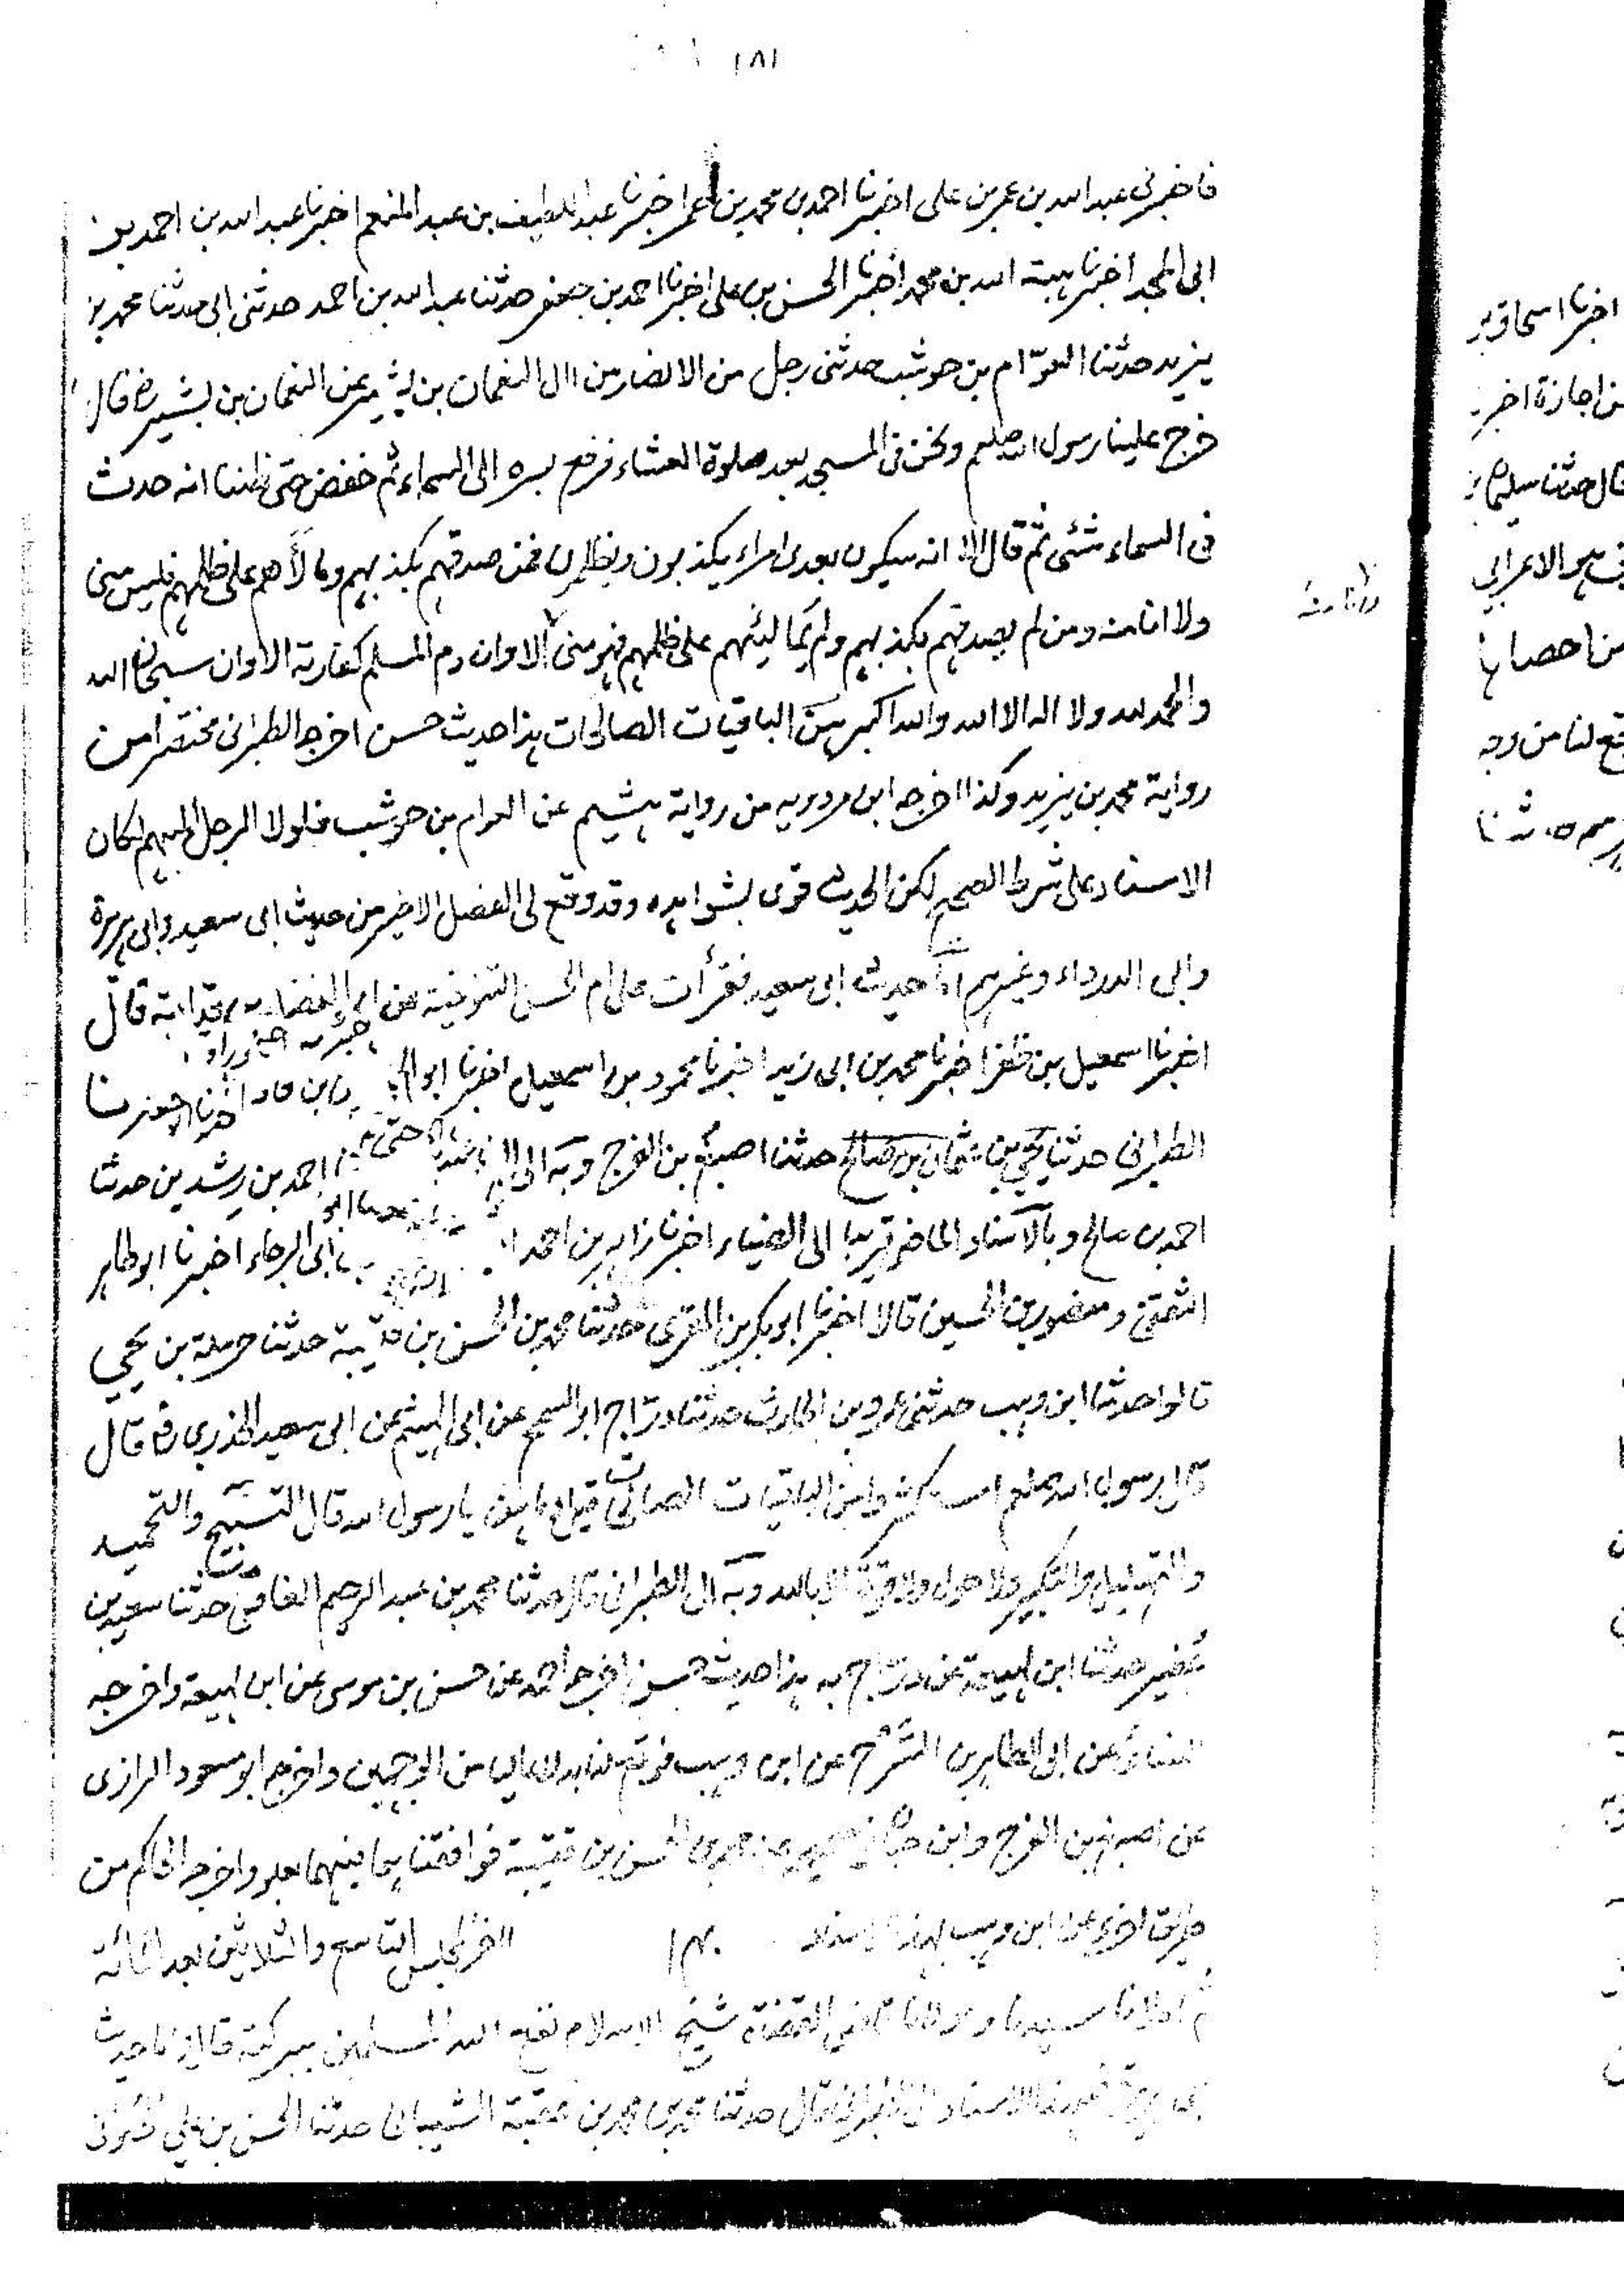 ١٨١
فاخبرنى عبد الله بن عمر بن على اخبرنا احمد بن محمد بن عمر اخبرنا عبد اللطيف بن عبد المنعم اخبرنا عبد الله بن احمد بن
ابى المجد اخبرنا هبة الله بن محمد اخبرنا الحسن بن على اخبرنا احمد بن جعفر حدثنا عبد الله بن احمد حدثنى ابى حدثنا محمد بن
يزيد حدثنا العوّام بن حوشب حدثنى رجل من الانصار من اال النعمان بن بشير عن النعمان بن بشير رض قال
خرج علينا رسول الله صلعم ونحن فى المسجد بعد صلوة العشاء فرفع بصره الى السماء ثم خفض حتى ظننا انه حدث
فى السماء شئى ثم قال الا انه سيكون بعدى امراء يكذبون ويظلمون فمن صدقهم بكذبهم ومالأهم على ظلمهم فليس منى
ولا انا منه ومن لم يصدقهم بكذبهم ولم يمالئهم على ظلمهم فهو منى الا وان دم المسلم كفارته الا وان سبحان الله
والحمد لله ولا اله الا الله والله اكبر هن الباقيات الصالحات هذا حديث حسن اخرجه الطبرانى مختصرا من
رواية محمد بن يزيد وكذا اخرجه ابن مردويه من رواية هشيم عن العوام بن حوشب فلولا الرجل المبهم لكان
الاسناد على شرط الصحيح لكن الحديث قوى بشواهده وقد وقع لى الفصل الاخير من حديث ابى سعيد وابى هريرة
وابى الدرداء وغيرهم امّا حديث ابى سعيد فقرأت على ام الحسن التنوخية عن ابى الفضل بن قدامة قال
اخبرنا اسمعيل بن ظفر اخبرنا محمد بن ابى زيد اخبرنا محمود بن اسمعيل اخبرنا ابو الحسين بن فاد اخبرنا
الطبرانى حدثنا يحيى بن عثمان بن صالح حدثنا اصبغ بن الفرج وبه الى احمد بن رشدين حدثنا
احمد بن صالح وبالاسناد الماضى قريبا الى الضياء اخبرنا زاهر بن احمد بن ابى الرجاء اخبرنا ابو طاهر
الثقفى ومنصور بن الحسين قالا اخبرنا ابو بكر بن المقرى حدثنا محمد بن الحسن بن قتيبة حدثنا حرملة بن يحيى
قالوا حدثنا ابن وهب حدثنى عمرو بن الحارث حدثنا درّاج ابو السمح عن ابى الهيثم عن ابى سعيد الخدرى رض قال
قال رسول الله صلعم استكثروا من الباقيات الصالحات قيل وما هن يا رسول الله قال التسبيح والتحميد
والتهليل والتكبير ولا حول ولا قوة الا بالله وبه الى الطبرانى قال حدثنا محمد بن عبد الرحيم الغافقى حدثنا سعيد بن
عُفير حدثنا ابن لهيعة عن درّاج به هذا حديث حسن اخرجه احمد عن حسن بن موسى عن ابن لهيعة واخرجه
النسائى عن ابى الطاهر بن السّرح عن ابن وهب فوقع لنا بدلا عاليا من الوجهين واخرجه ابو مسعود الرازى
عن اصبغ بن الفرج وابن حبان عن محمد بن الحسن بن قتيبة فوافقناهما فيهما بعلو واخرجه الحاكم من
طريق اخرى عن ابن وهب بهذا الاسناد آخر المجلس التاسع والثلاثين بعد المائة
ثم املانا سيدنا ومولانا قاضى القضاة شيخ الاسلام نفع الله المسلمين ببركته قال اما حديث
ابى هريرة الاسناد الى الطبرانى قال حدثنا محمد بن محمد بن عقبة الشيبانى حدثنا الحسن بن على
اخبرنا اسحاق بن
اجازة اخبر
قال حدثنا سليمان
هو الاعرابى
من احصاها
وقع لنا من وجه